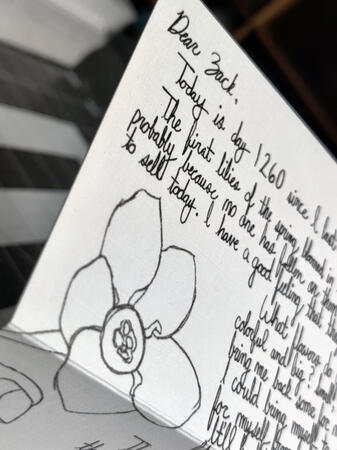 Dear Zack,
Today is day 1260 since I last
The first lilies of the spring bloomed in
probably because no one has fallen on them
to sell today. I have a good feeling that the
colorful and big?
bring me back some for
I could bring myself to
for myself